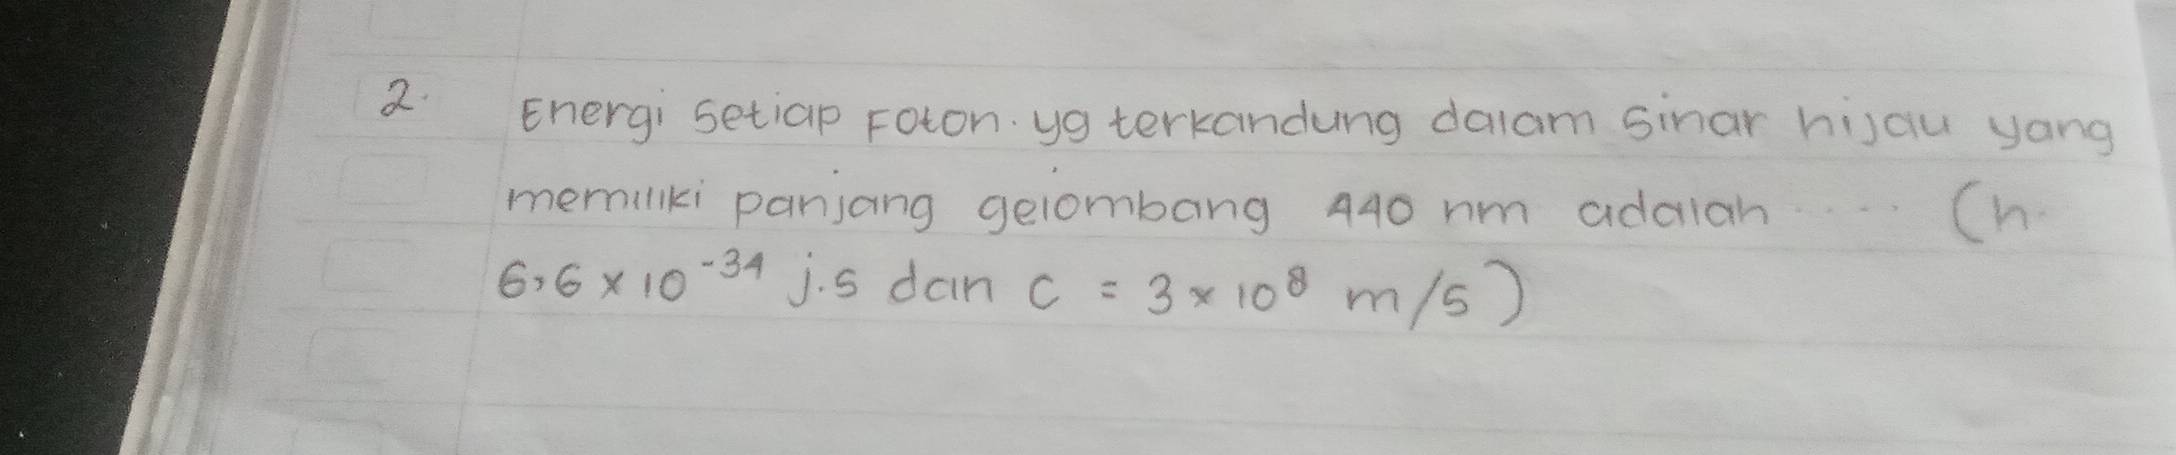 2. Energi setiap Foton. yg terkandung dalam sinar hijau yang
memiliki panjang gelombang 440 nm adalah .... (h.
6,6 × 10⁻³⁴ j.s dan c = 3 × 10⁸ m/s)